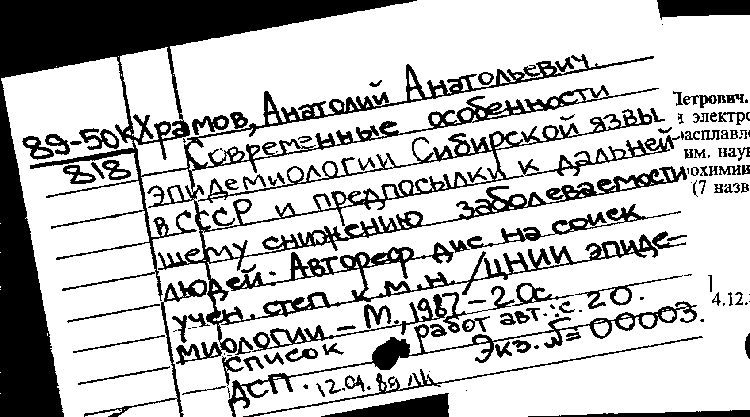 89-50к
818
Храмов, Анатолий Анатольевич.
Современные особенности
эпидемиологии Сибирской язвы
в СССР и предпосылки к дальней-
шему снижению заболеваемости
людей: Автореф. дис. на соиск
учен. степ. к.м.н. /ЦНИИ эпиде-
миологии. – М., 1987 – 20с.
список работ авт.: с. 20.
ДСП. 12.04.89 Экз. №= 00003.
Петрович.
и электро
расплавле
им. наук
охимии
(7 назв
4.12.